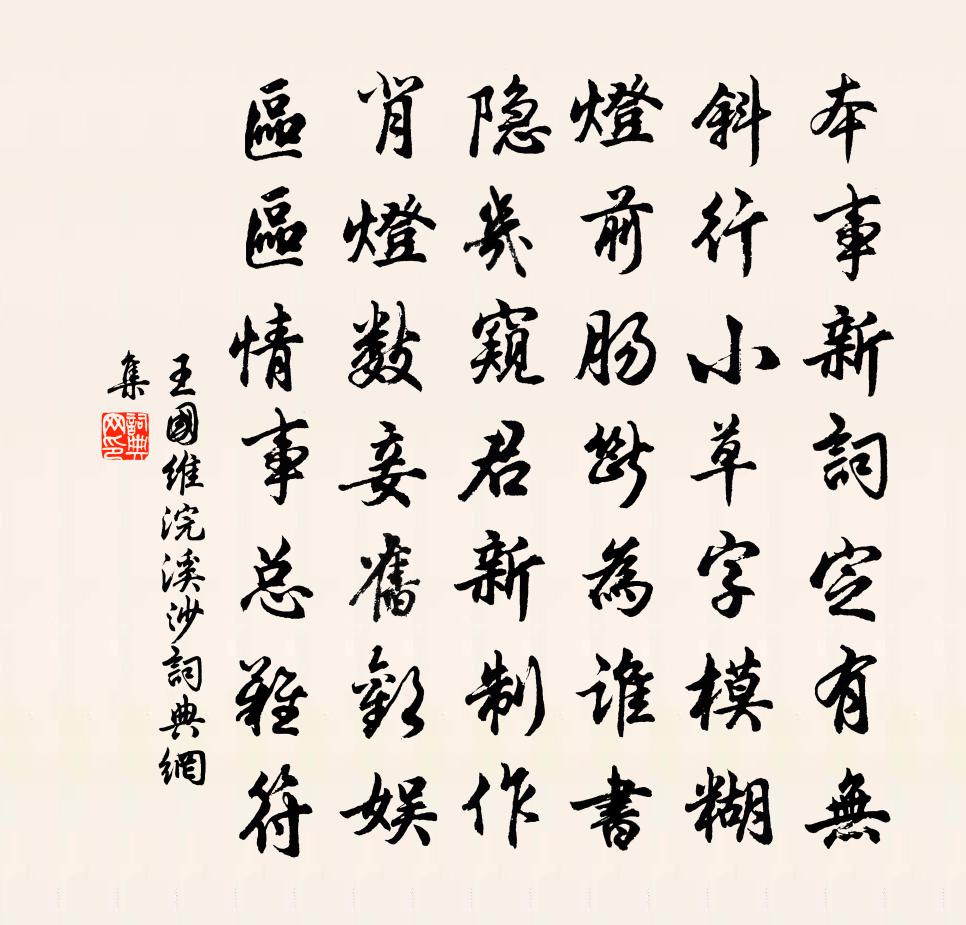 本事新詞定有無
斜行小草字模糊
燈前肠斷為誰書
隐幾窺君新制作
背燈數妾舊歡娱
區區情事总難符
王國維浣溪沙詞典網
集
詞典网印